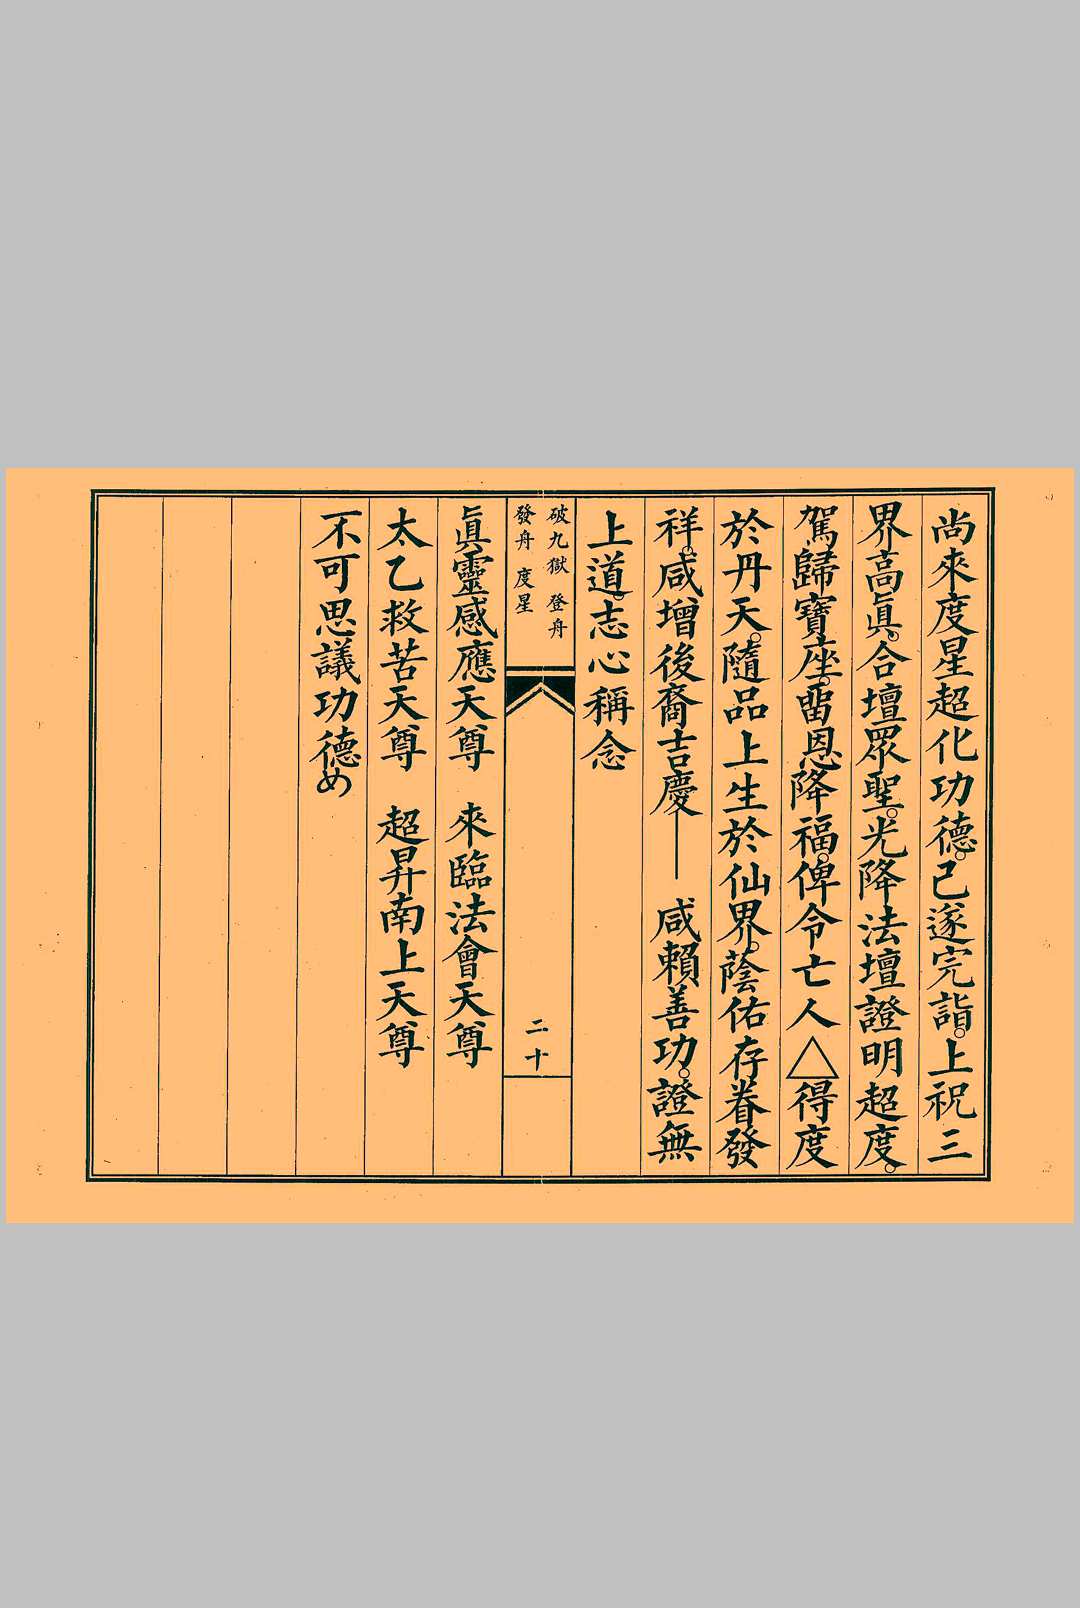 尚來度星超化功德。已遂完詣。上祝三
界高眞。合壇眾聖。光降法壇證明超度。
駕歸寶座。畱恩降福。俾令亡人△得度
於丹天。隨品上生於仙界。蔭佑存眷發
祥。咸增後裔吉慶——咸賴善功。證無
上道。志心稱念
破九獄 登舟
發舟 度星
二十
眞靈感應天尊 來臨法會天尊
太乙救苦天尊 超昇南上天尊
不可思議功德